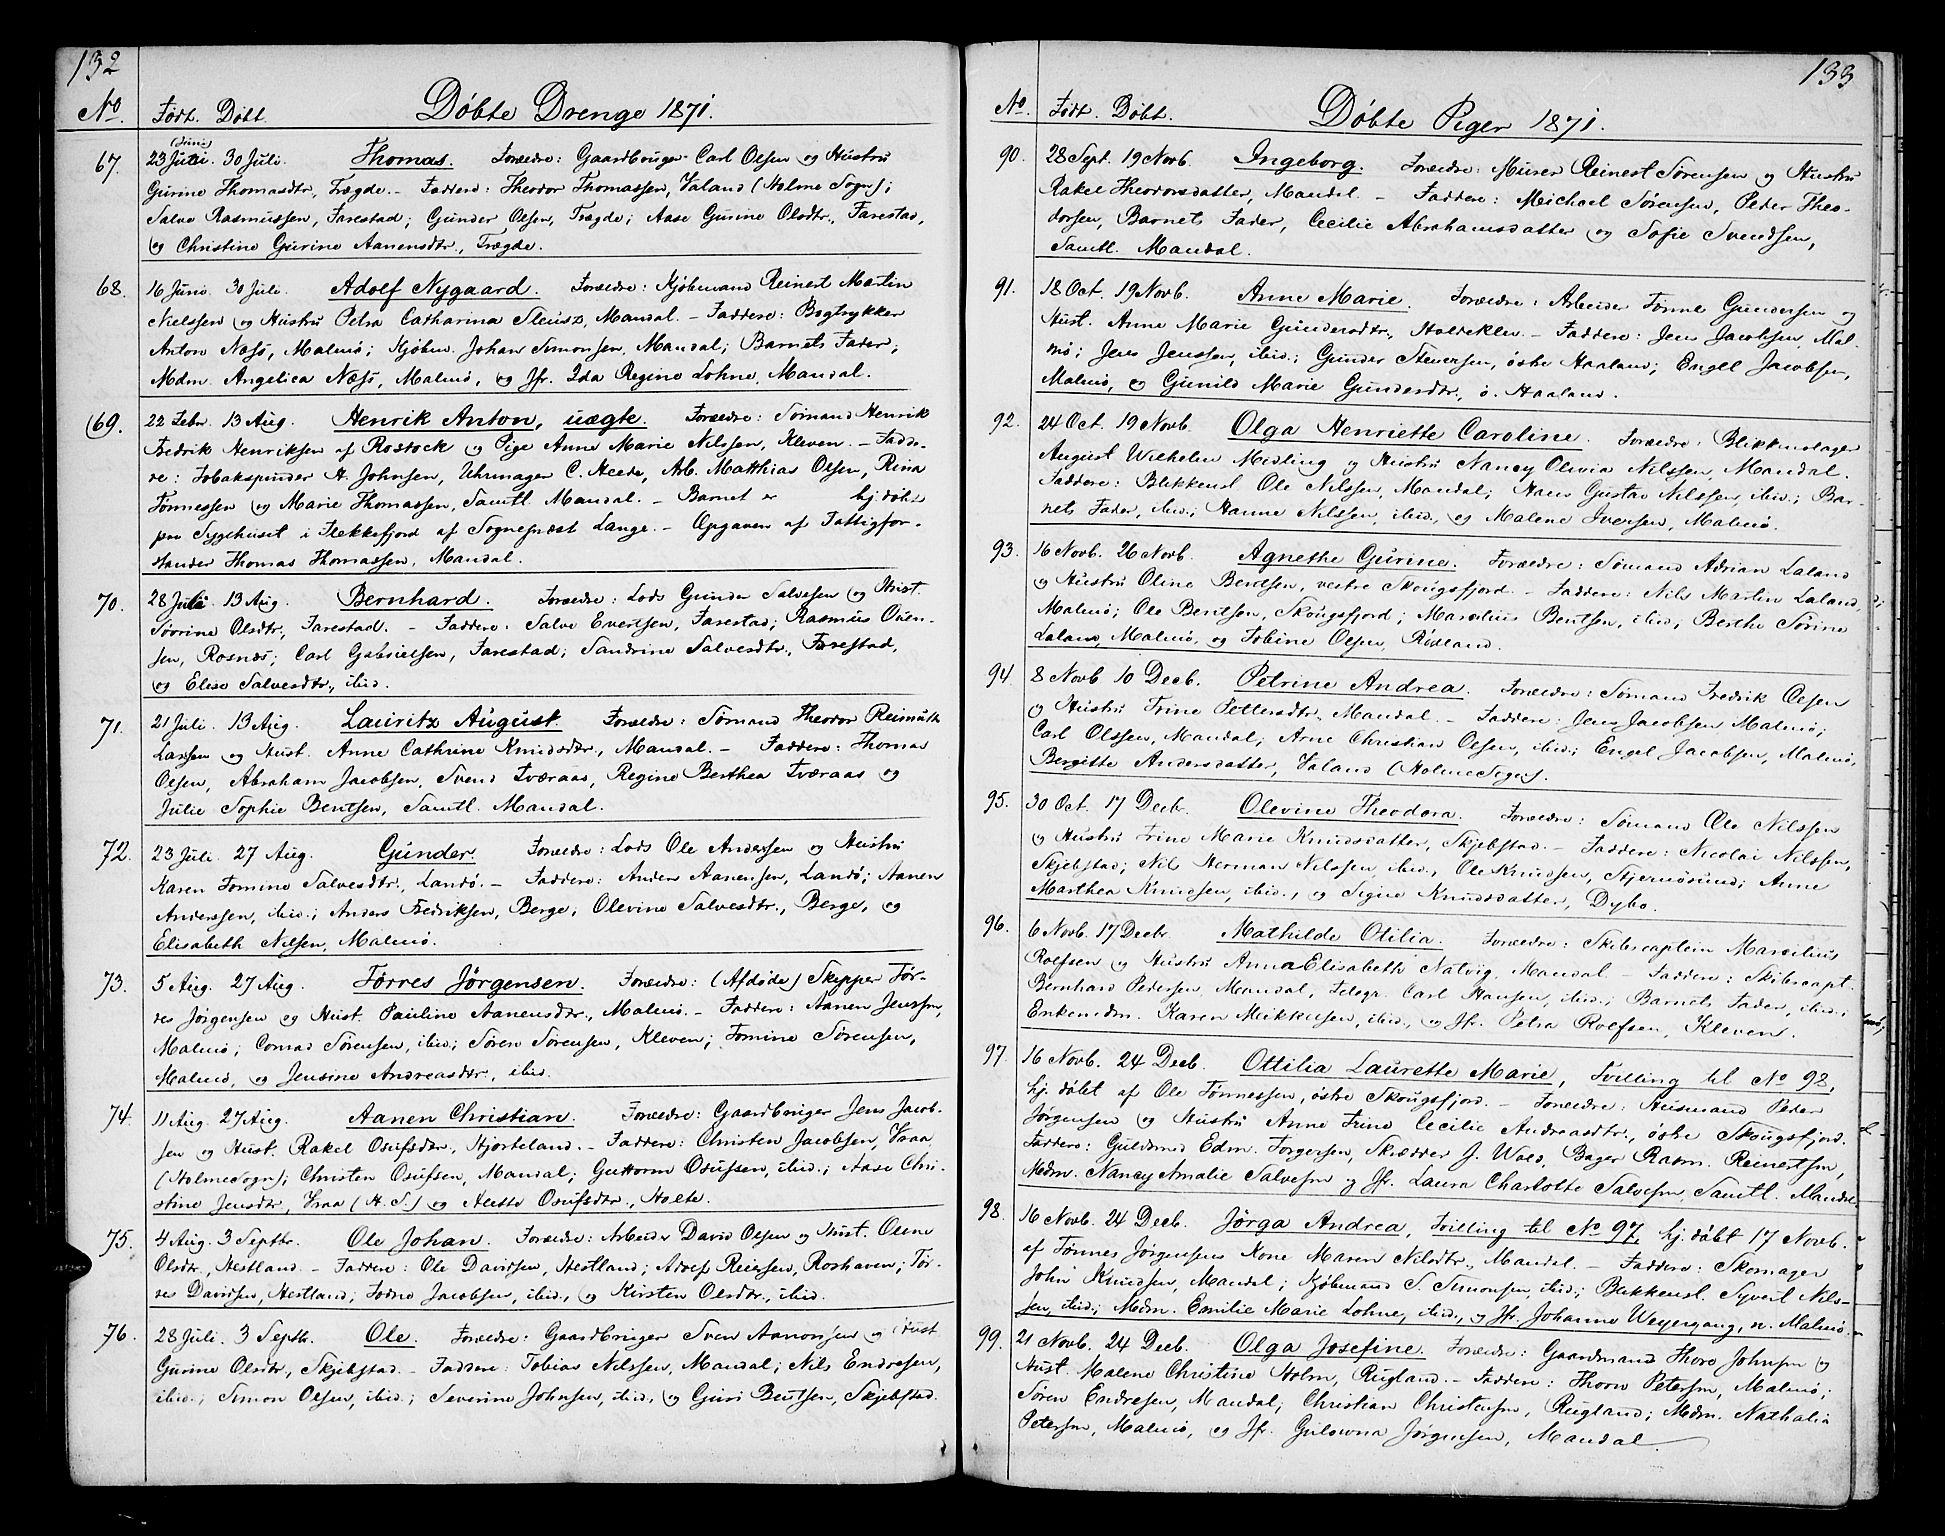 132
No. Født. Döbt. Döbte Drenge 1871.
67. 23 Juli (Juni) 30 Juli. Thomas. Forældre: Gaardbruger Carl Olsen og Hustru
Gurine Thomasdtr, Trægde. – Faddere: Theodor Thomassen, Valand (Holme Sogn);
Salve Rasmussen, Farestad; Gunder Olsen, Trægde; Aase Gurine Olsdtr, Farestad,
og Christine Gurine Aanensdtr., Trægde.
68. 16 Juni. 30 Juli. Adolf Nygaard. Forældre: Kjøbmand Reinert Martin
Nielssen og Hustru Petra Catharina Steusz, Mandal. – Faddere: Bogtrykker
Anton Næss, Malmö; Kjöbm. Johan Simonsen, Mandal; Barnets Fader;
Mdm. Angelica Næss, Malmö, og Jfr. Ida Regine Lohne, Mandal.
69. 22 Febr. 13 Aug. Henrik Anton, uægte. Forældre: Sömand Henrik
Fredrik Henriksen af Rostock og Pige Anne Marie Nilssen, Kleven. – Fadde-
re: Tobakspinder H. Johnsen, Uhrmager C. Aceda, Arb. Matthias Olsen, Rina
Tönnessen og Marie Thomassen, Samtl. Mandal. – Barnet er hj.döbt
paa Sygehuset i Flekkefjord af Sognepræst Lange. – Opgaven af Fattigfor-
stander Thomas Thomassen, Mandal.
70. 28 Juli. 13 Aug. Bernhard. Forældre: Lods Gunder Salvesen og Hust.
Sörine Olsdtr., Farestad. – Faddere: Salve Evertsen, Farestad; Rasmus Oven-
sen, Rosnæs; Carl Gabrielsen, Farestad; Sandrine Salvesdtr., Farestad,
og Elise Salvesdtr., ibid.
71. 21 Juli. 13 Aug. Lauritz August. Forældre: Sömand Theodor Reimuth
Larssen og Hust. Anne Cathrine Knudsdtr., Mandal. – Faddere: Thomas
Olsen, Abraham Jacobsen, Svend Tværaas, Regine Berthea Tværaas og
Julie Sophie Bentsen, Samtl. Mandal.
72. 23 Juli. 27 Aug. Gunder. Forældre: Lods Ole Andersen og Hustru
Karen Tomine Salvesdtr., Landö. – Faddere: Anders Aanensen, Landö; Aanen
Anderssen, ibid.; Anders Fredriksen, Berge; Olevine Salvesdtr., Berge, og
Elisabeth Nilsen, Malmö.
73. 5 Aug. 27 Aug. Törres Jörgensen. Forældre: (Afdöde) Skipper Tör-
res Jörgensen og Hust. Pauline Aanensdtr., Malmö. – Faddere: Aanen Jenssen,
Malmö; Conrad Sörensen, ibid; Sören Sörensen, Kleven; Tomine Sörensen,
Malmö, og Jensine Andreasdtr., ibid.
74. 11 Aug. 27 Aug. Aanen Christian. Forældre: Gaardbruger Jens Jacob-
sen og Hust. Rakel Osufsdtr., Hjorteland. – Faddere: Christen Jacobsen, Vraa
(Holme Sogn); Christen Osufsen, Mandal; Guttorm Osufsen, ibid.; Aase Chri-
stine Jensdtr, Vraa (H.S.) og Aleste Osufsdtr., Holte.
75. 4 Aug. 3 Septbr. Ole Johan. Forældre: Arbeider David Olsen og Hust. Olene
Olsdtr., Hestland. – Faddere: Ole Davidsen, Hestland; Adolf Reiersen, Roshaven; Tör-
res Davidsen, Hestland; Todne Jacobsen, ibid., og Kirsten Olsdtr., ibid.
76. 28 Juli. 3 Septb. Ole. Forældre: Gaardbruger Sven Aanonsen og Hust.
Gurine Olsdtr., Skjebstad. – Faddere: Tobias Nilssen, Mandal; Nils Endresen,
ibid.; Simon Olsen, ibid.; Severine Johnsen, ibid., og Guri Bentsen, Skjebstad.
133
No. Født. Döbt. Döbte Piger 1871.
90. 28 Sept. 19 Novb. Ingeborg. Forældre: Murer Reinert Sörensen og Hustru
Rakel Theodorsdatter, Mandal. – Faddere: Michael Sörensen, Peder Theo-
dorsen, Barnets Fader, Cecilie Abrahamsdatter og Sofie Svendsen,
Samtl. Mandal.
91. 18 Oct. 19 Novb. Anne Marie. Forældre: Arbeider Tönnes Gundersen og
Hust. Anne Marie Gundersdtr., Holteklev. – Faddere: Jens Jacobsen, Mal-
mö; Jens Jenssen, ibid.; Gunder Stevensen, östre Haaland; Engel Jacobsen,
Malmö, og Gunild Marie Gundersdtr., ö. Haaland.
92. 24 Oct. 19 Novb. Olga Henriette Caroline. Forældre: Blikkenslager
August Wilhelm Midling og Hustru Nancy Olivia Nilssen, Mandal.
Faddere: Blikkensl. Ole Nilssen, Mandal; Hans Gustav Nilssen, ibid.; Bar-
nets Fader, ibid.; Hanne Nilssen, ibid., og Malene Iversen, Malmö.
93. 16 Novb. 26 Novb. Agnethe Gurine. Forældre: Sömand Adrian Laland
og Hustru Oline Berntsen, vestre Skougsfjord. – Faddere: Nils Martin Laland,
Malmö; Ole Berntsen, Skougsfjord; Marselius Bentsen, ibid.; Berthe Sörine
Laland, Malmö, og Tobine Olsen, Rödland.
94. 8 Novb 10 Decb. Petrine Andrea. Forældre: Sömand Fredrik Olsen
og Hustru Trine Pettersdtr., Mandal. – Faddere: Jens Jacobsen Malmö;
Carl Olssen, Mandal; Arne Christian Olsen, ibid.; Engel Jacobsen, Malmö,
Bergitte Andersdatter, Valand (Holme Sogn).
95. 30 Oct. 17 Decb. Olevine Theodora. Forældre: Sömand Ole Nilssen
og Hustru Trine Marie Knudsdatter, Skjebstad. – Faddere: Nicolai Nilssen,
Skjebstad; Nil Herman Nilssen, ibid., Ole Knudsen, Stjernösund; Anne
Marthea Knudsen, ibid., og Signe Knudsdatter, Dybo.
96. 6 Novb. 17 Decb. Mathilde Otilia. Forældre: Skibscaptein Marcelius
Rolfsen og Hustru Anna Elisabeth Natvig, Mandal – Faddere: Skibscapt.
Bernhard Pedersen, Mandal, Telegr. Carl Hansen, ibid.; Barnets Fader, ibid.;
Enkemdm. Karen Mikkelsen, ibid., og Jfr. Petra Rolfsen, Kleven.
97. 16 Novb. 24 Decb. Ottilia Laurette Marie, Tvilling til No 98,
hj. döbt af Ole Tönnessen, östre Skougsfjord. – Forældre: Husmand Peder
Jörgensen og Hustru Anne Trine Cecilie Andreasdtr., östre Skougsfjord.
Faddere: Guldsmed Edm. Torgersen, Skrædder J. Wold, Bager Rasm. Reinertsen,
Mdm. Nancy Amalie Salvesen og Jfr. Laura Charlotte Salvesen, Samtl. Mandal.
98. 16 Novb. 24 Decb. Jörga Andrea, Tvilling til No 97, hj. döbt 17 Novb.
af Tönnes Jörgensens Kone Maren Nilsdtr., Mandal. – Faddere: Skomager
John Knudsen, Mandal; Kjöbmand S. Simonsen, ibid.; Blikkensl. Syvert Nils-
sen, ibid.; Mdm. Emilie Marie Lohne, ibid., og Jfr. Johanne Weyergang, n. Malmö.
99. 21 Novb. 24 Decb. Olga Josefine. Forældre: Gaardmand Thore Johnsen og
Hust. Malene Christine Holm, Rugland. – Faddere: Thorn Petersen, Malmö;
Sören Endresen, Mandal; Christian Christensen, Rugland; Mdm. Nathalia
Petersen, Malmö, og Jfr. Gulovna Jörgensen, Mandal.